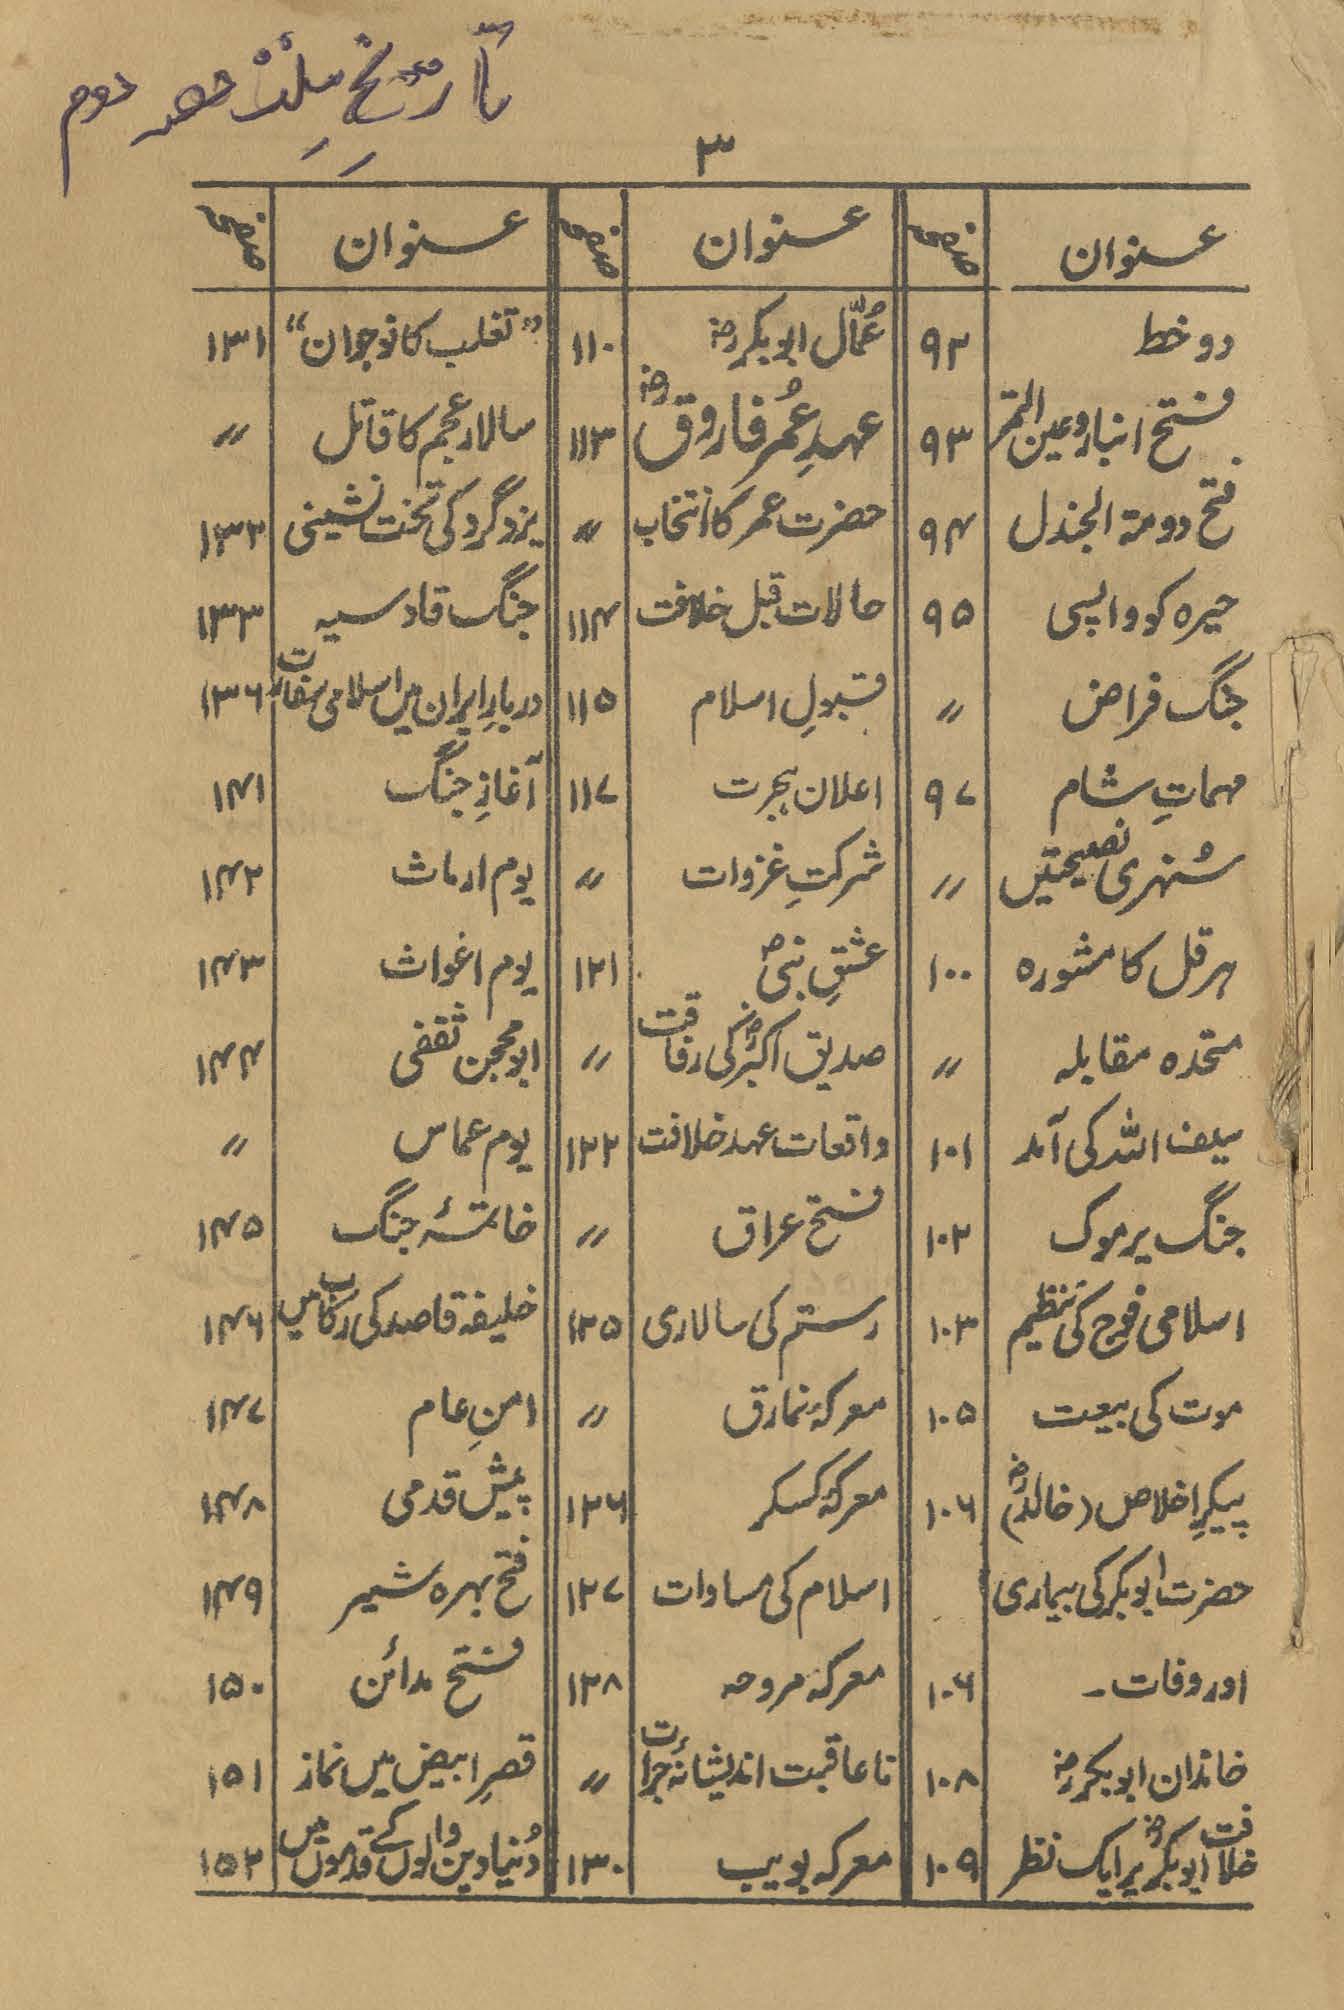 تاریخِ مِلّت حصہ دوم
۳
عنوان صفحہ عنوان صفحہ عنوان صفحہ
دو خط ۹۲ عُمّال ابوبکرؓ ۱۱۰ ”تغلب کا نوجوان“ ۱۳۱
فتح انبار و عین التمر ۹۳ عہدِ عُمر فاروقؓ ۱۱۳ سالار عجم کا قاتل ״
فتح دومۃ الجندل ۹۴ حضرت عمر کا انتخاب ״ یزدگرد کی تخت نشینی ۱۳۲
حیرہ کو واپسی ۹۵ حالات قبل خلافت ۱۱۴ جنگ قادسیہ ۱۳۳
جنگ فراض ״ قبولِ اسلام ۱۱۵ دربارِ ایران میں اسلامی سفارت ۱۳۶
مہماتِ شام ۹۷ اعلان ہجرت ۱۱۷ آغازِ جنگ ۱۴۱
سُنہری نصیحتیں ״ شرکتِ غزوات ״ یوم ارماث ۱۴۲
ہرقل کا مشورہ ۱۰۰ عشقِ نبیؐ ۱۲۱ یوم اغواث ۱۴۳
متحدہ مقابلہ ״ صدیق اکبرؓ کی رفاقت ״ ابو محجن ثقفی ۱۴۴
سیف اللہ کی آمد ۱۰۱ واقعات عہد خلافت ۱۲۲ یوم عماس ״
جنگ یرموک ۱۰۲ فتح عراق ״ خاتمۂ جنگ ۱۴۵
اسلامی فوج کی تنظیم ۱۰۳ رستم کی سالاری ۱۲۵ خلیفہ قاصد کی رکاب میں ۱۴۶
موت کی بیعت ۱۰۵ معرکۂ نمارق ״ امنِ عام ۱۴۷
پیکرِ اخلاص (خالدؓ) ۱۰۶ معرکۂ کسکر ۱۲۶ پیش قدمی ۱۴۸
حضرت ابوبکر کی بیماری اسلام کی مساوات ۱۲۷ فتح بہرہ شیر ۱۴۹
اور وفات۔ ۱۰۶ معرکۂ مروحہ ۱۲۸ فتح مدائن ۱۵۰
خاندان ابوبکرؓ ۱۰۸ ناعاقبت اندیشانہ جرأت ״ قصرِ ابیض میں نماز ۱۵۱
خلافت ابوبکرؓ پر ایک نظر ۱۰۹ معرکہ بویب ۱۳۰ دُنیا دین والوں کے قدموں میں ۱۵۲